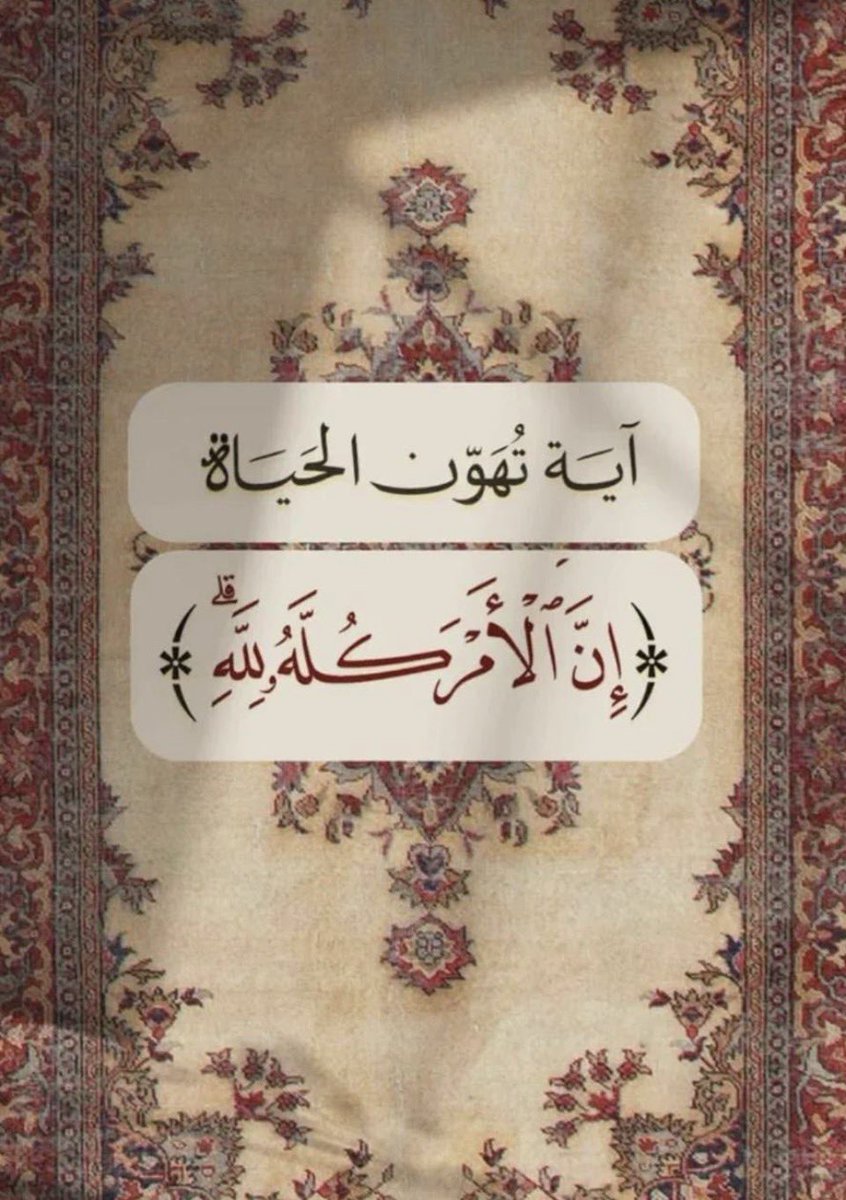 آيَـة تُهَوّن الحَيَـاة
﴿إِنَّ ٱلْأَمْرَ كُلَّهُۥ لِلَّهِ ۗ﴾